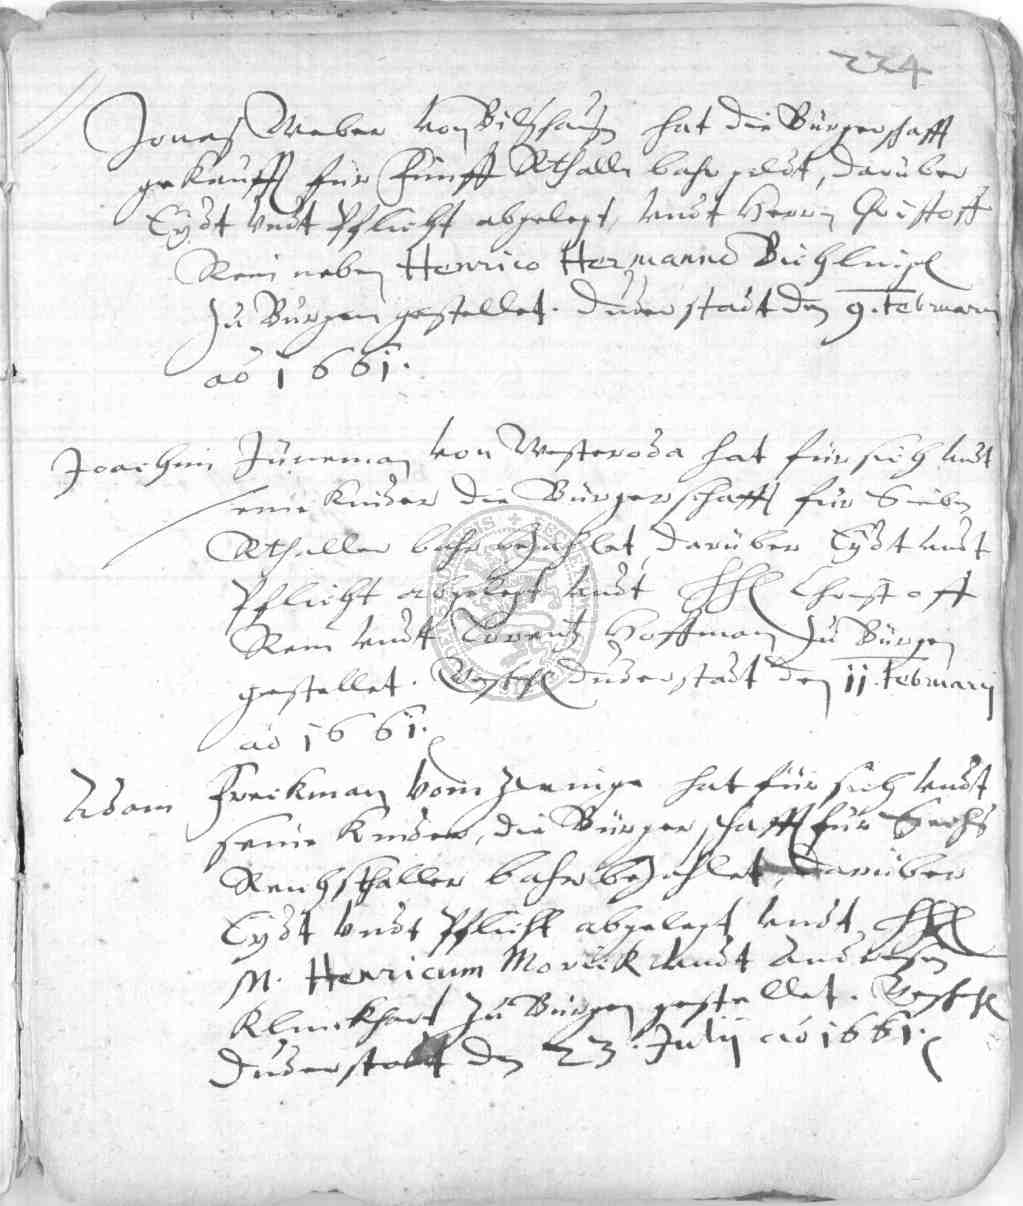 224
Jonas Weber von Bilshausen hat die Bürgerschafft
gekaufft für Fünff Rthaller bahr geldt, darüber
Eydt undt Pflicht abgelegt, undt Herrn Christoff
Rein neben Henrico Hermanno
zu Bürgen gestellet. Duderstadt den 9. February
ao 1661.
Joachim Jüneman von Westeroda hat für sich undt
seine Kinder die Bürgerschafft für Sieben
Rthaller bahr bezahlet, darüber Eydt undt
Pflicht abgelegt undt Christoff
Rein undt Lorentz Hoffman zu Bürgen
gestellet. Duderstadt den 11. February
ao 1661.
Adam Freckman vom hat für sich undt
seine Kinder, die Bürgerschafft für Sechs
Reichsthaller bahr bezahlet, darüber
Eydt undt Pflicht abgelegt undt
M. Henricum Morick undt Andresen
Klinckhart zu Bürgen gestellet.
Duderstadt den 23. July ao 1661.